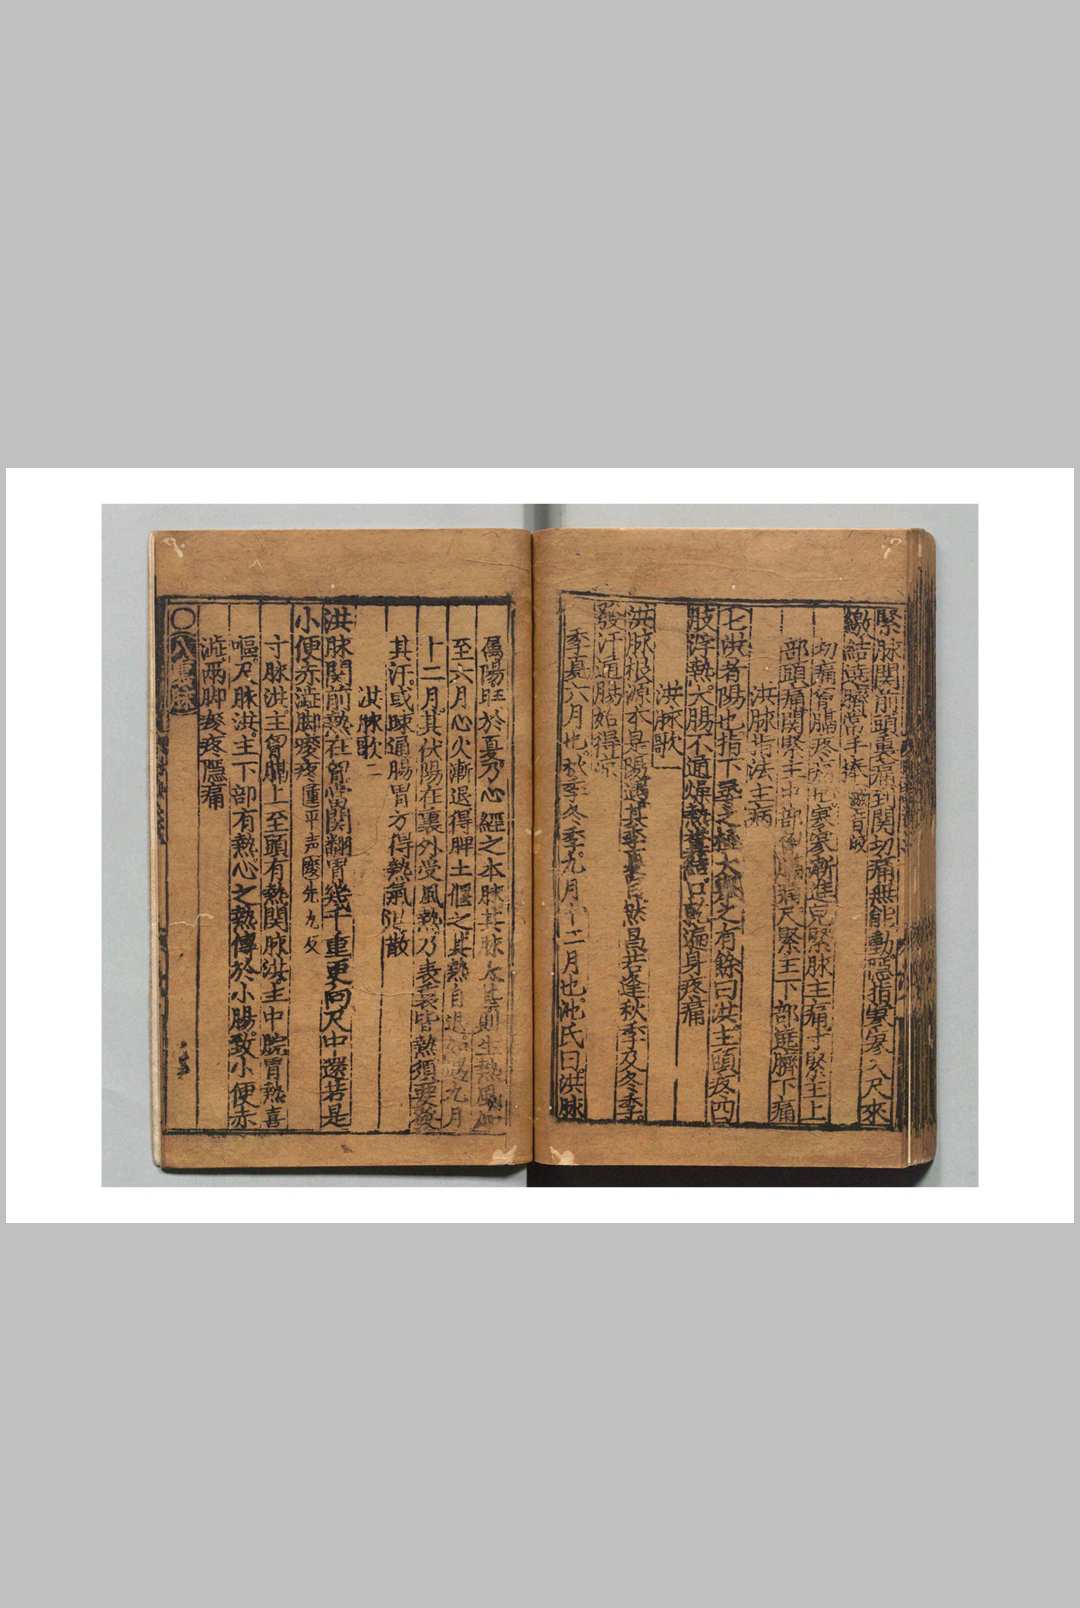 緊脉關前頭裏痛到關切痛無能動隱指寥寥入尺來
繳結遶臍常手捧
切痛胷膈疼痛
部頭痛關緊主中部
尺緊主下部遶臍下痛
洪脉指法主病
七洪者陽也指下尋之極大舉之有餘曰洪主頭疼四
肢浮熱大腸不通燥熱糞結口乾遍身疼痛
洪脉歌一
洪脉根源本是陽遇其季夏自然昌若逢秋季及冬季
發汗通腸始得涼
季夏六月也秋季冬季九月十二月也池氏曰洪脉
屬陽旺於夏乃心經之本脉其脉
至六月心火漸退得脾土偃之其熱自退九月
十二月其伏陽在裏外受風熱乃表裏皆熱須要發
其汗或疎通腸胃方得熱氣
散
洪脉歌二
洪脉關前熱在胷當關翻胃幾千重更向尺中還若是
小便赤澁脚痠疼重平声
寸脉洪主胷膈上至頭有熱關脉洪主中脘胃熱喜
嘔尺脉洪主下部有熱心之熱傳於小腸致小便赤
澁兩脚痠疼隱痛
○八裏